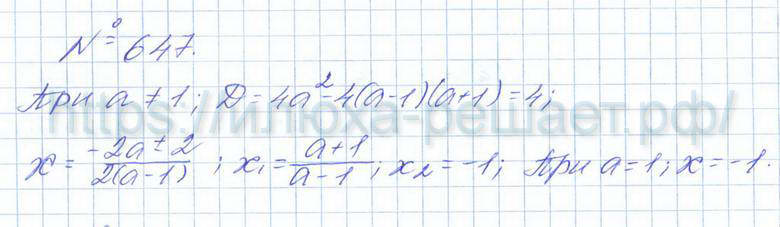 № 647.
При a ≠ 1; D = 4a² - 4(a-1)(a+1) = 4;
x = (-2a ± 2)/(2(a-1)); x₁ = (a+1)/(a-1); x₂ = -1; При a = 1; x = -1.
https://илюха-решает.рф/